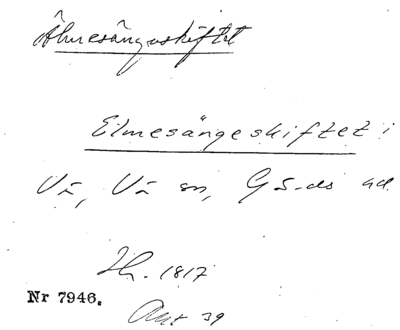 Älmesängaskiftet
Elmesängeskiftet i
Vä, Vä sn, Gä-ds hd
Jh. 1817
Nr 7946.
Akt 39